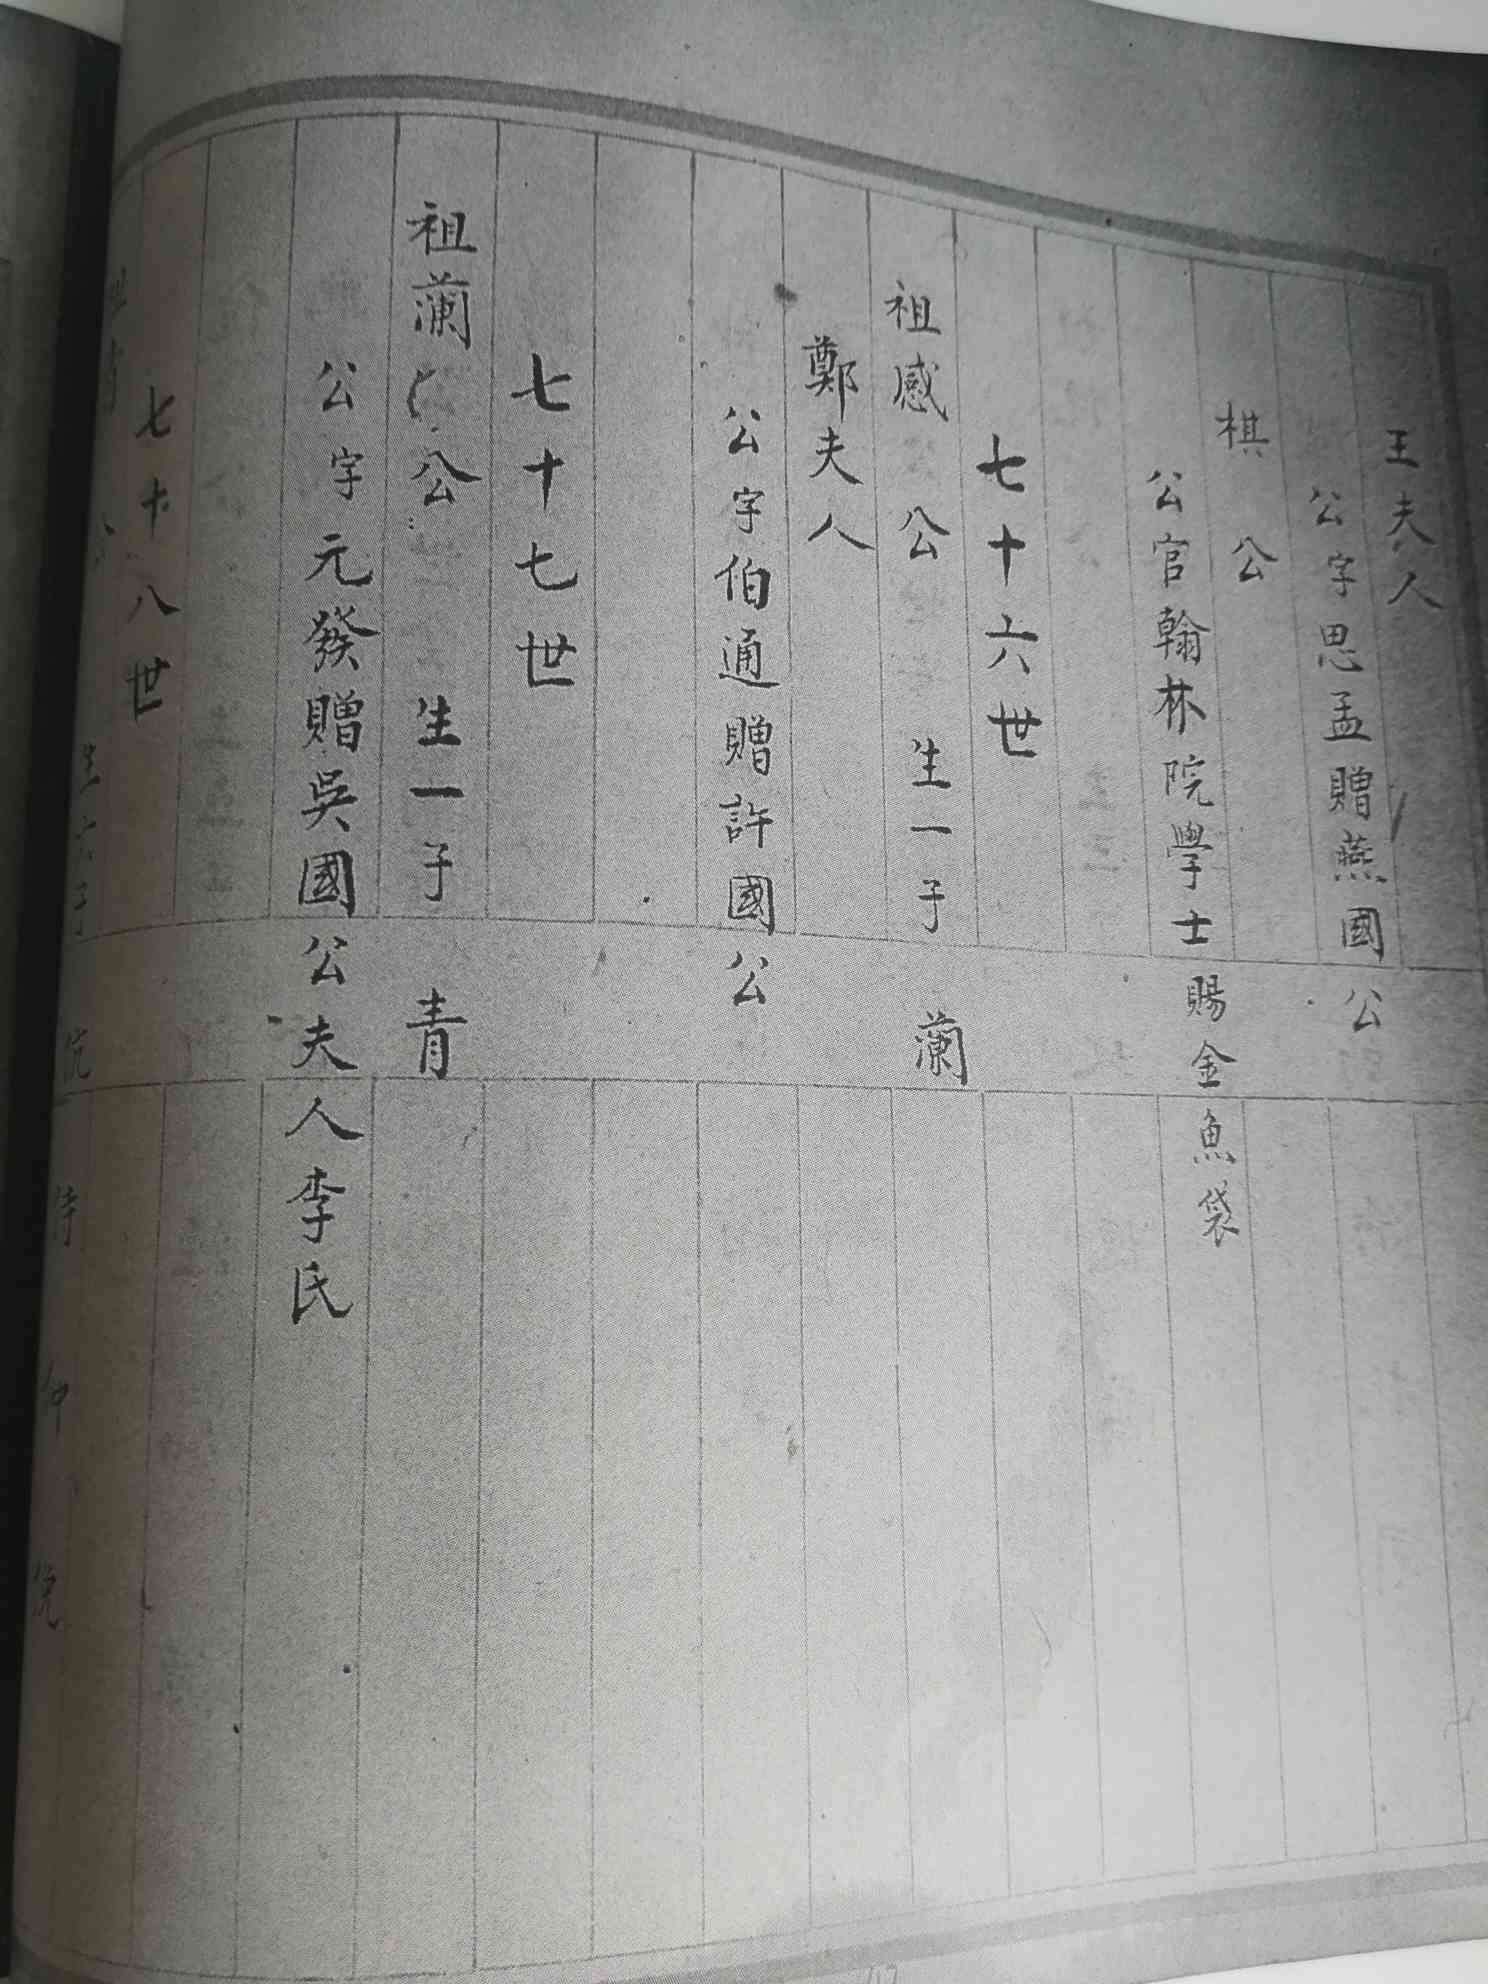 王夫人
公字思孟贈燕國公
棋公
公官翰林院學士賜金魚袋
七十六世
祖感公 生一子 蘭
鄭夫人
公字伯通贈許國公
七十七世
祖蘭公 生一子 青
公字元發贈吳國公夫人李氏
七十八世
生六子 侃 侍 仲